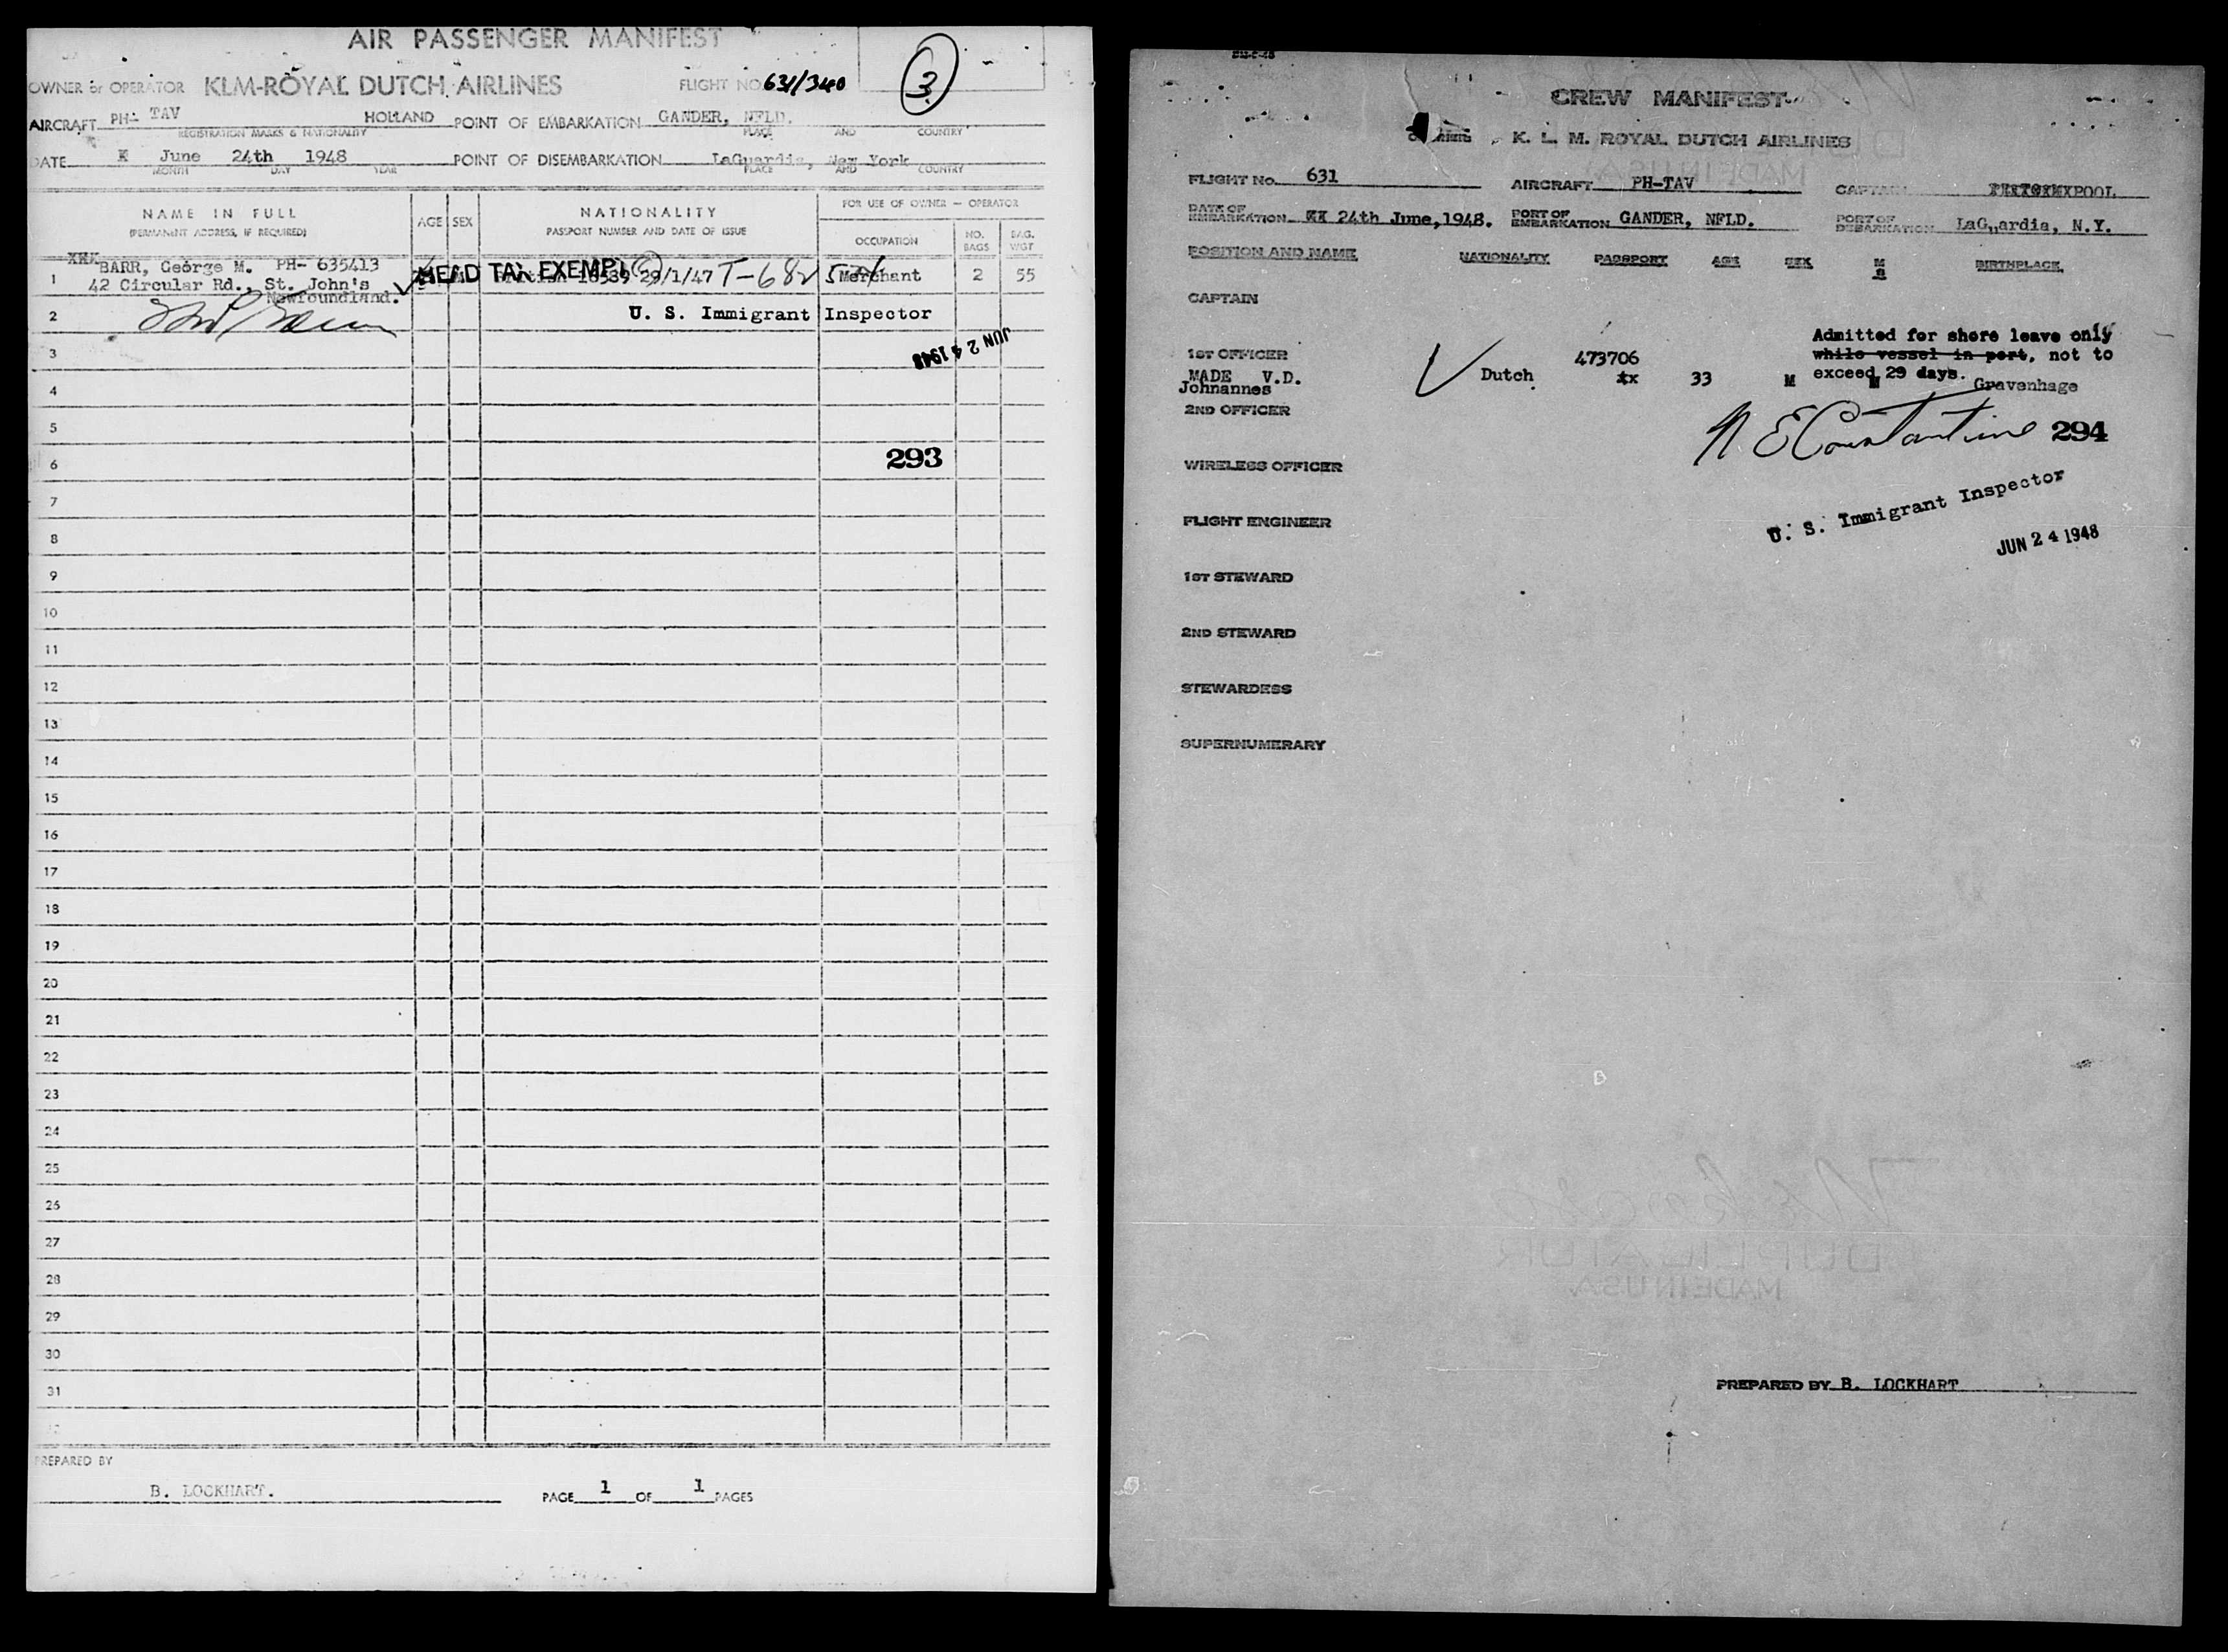 AIR PASSENGER MANIFEST
3
OWNER or OPERATOR KLM-ROYAL DUTCH AIRLINES FLIGHT NO 631/340
AIRCRAFT PH- TAV HOLLAND POINT OF EMBARKATION GANDER, NFLD.
REGISTRATION MARKS & NATIONALITY PLACE AND COUNTRY
DATE June 24th 1948 POINT OF DISEMBARKATION LaGuardia, New York
MONTH DAY YEAR PLACE AND COUNTRY
NAME IN FULL AGE SEX NATIONALITY FOR USE OF OWNER — OPERATOR
(PERMANENT ADDRESS, IF REQUIRED) PASSPORT NUMBER AND DATE OF ISSUE OCCUPATION NO. BAGS BAG. WGT
1 BARR, George M. PH- 635413 HEAD TAX EXEMPT British 18539 29/1/47 T-682 Merchant 2 55
42 Circular Rd., St. John's
Newfoundland.
2 U. S. Immigrant Inspector
JUN 24 1948
3
4
5
6 293
7
8
9
10
11
12
13
14
15
16
17
18
19
20
21
22
23
24
25
26
27
28
29
30
31
PREPARED BY
B. LOCKHART.
PAGE 1 OF 1 PAGES
CREW MANIFEST
K. L. M. ROYAL DUTCH AIRLINES
FLIGHT No. 631 AIRCRAFT PH-TAV CAPTAIN POOL
DATE OF EMBARKATION 24th June, 1948. PORT OF EMBARKATION GANDER, NFLD. PORT OF DEBARKATION LaGuardia, N.Y.
POSITION AND NAME NATIONALITY PASSPORT AGE SEX M S BIRTHPLACE
CAPTAIN
Admitted for shore leave only
while vessel in port, not to
exceed 29 days.
1ST OFFICER
MADE V.D. Dutch 473706 33 M M Gravenhage
Johnannes
2ND OFFICER
N E Constantine 294
WIRELESS OFFICER
U. S. Immigrant Inspector
FLIGHT ENGINEER
JUN 24 1948
1ST STEWARD
2ND STEWARD
STEWARDESS
SUPERNUMERARY
DUPLICATOR
MADE IN USA
PREPARED BY B. LOCKHART